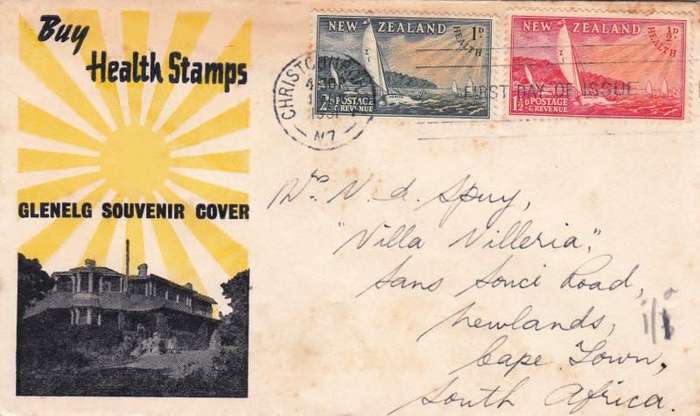 Buy
Health Stamps
GLENELG SOUVENIR COVER
NEW ZEALAND 1D
HEALTH
2D POSTAGE
& REVENUE
NEW ZEALAND ½D
HEALTH
1½D POSTAGE
& REVENUE
CHRISTCHURCH
1951
N.Z.
FIRST DAY OF ISSUE
V. d. Spuy,
"Villa Villeria",
Sans Souci Road,
Newlands,
Cape Town,
South Africa.